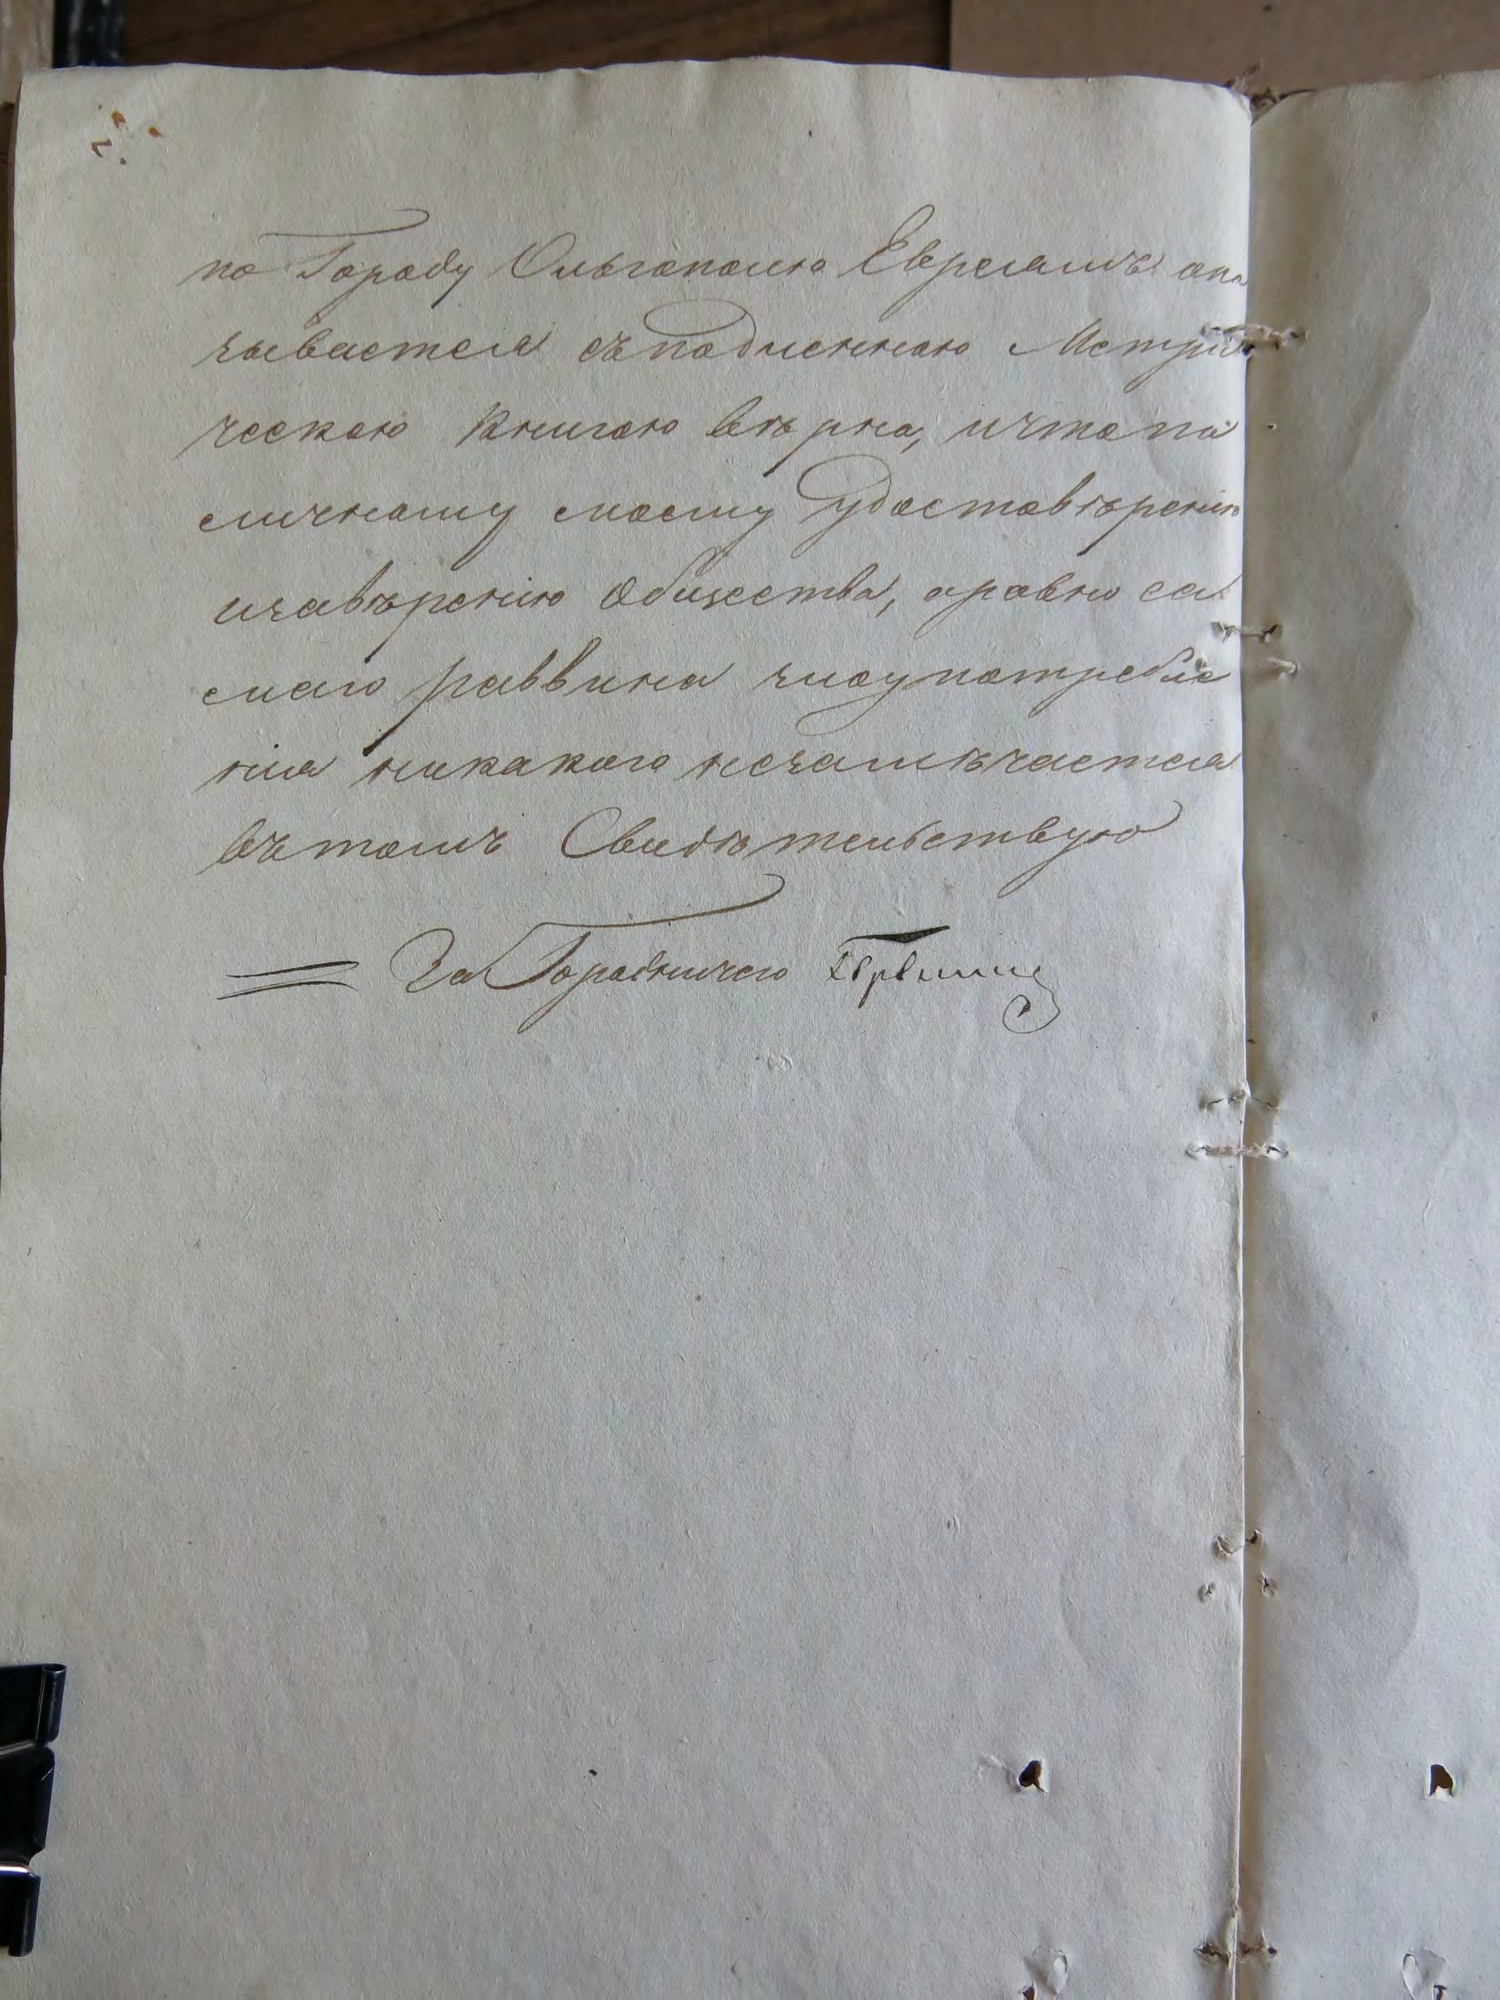 по Городу Ольгополю Евреямъ ока
зывается съ подленною Метри
ческою Книгою вѣрна, и что по
личному моему удостовѣренію
и завѣренію Общества, а равно са
маго раввина злоупотребле
нія никакого незамѣчается
въ томъ Свидѣтельствую
За Городничего